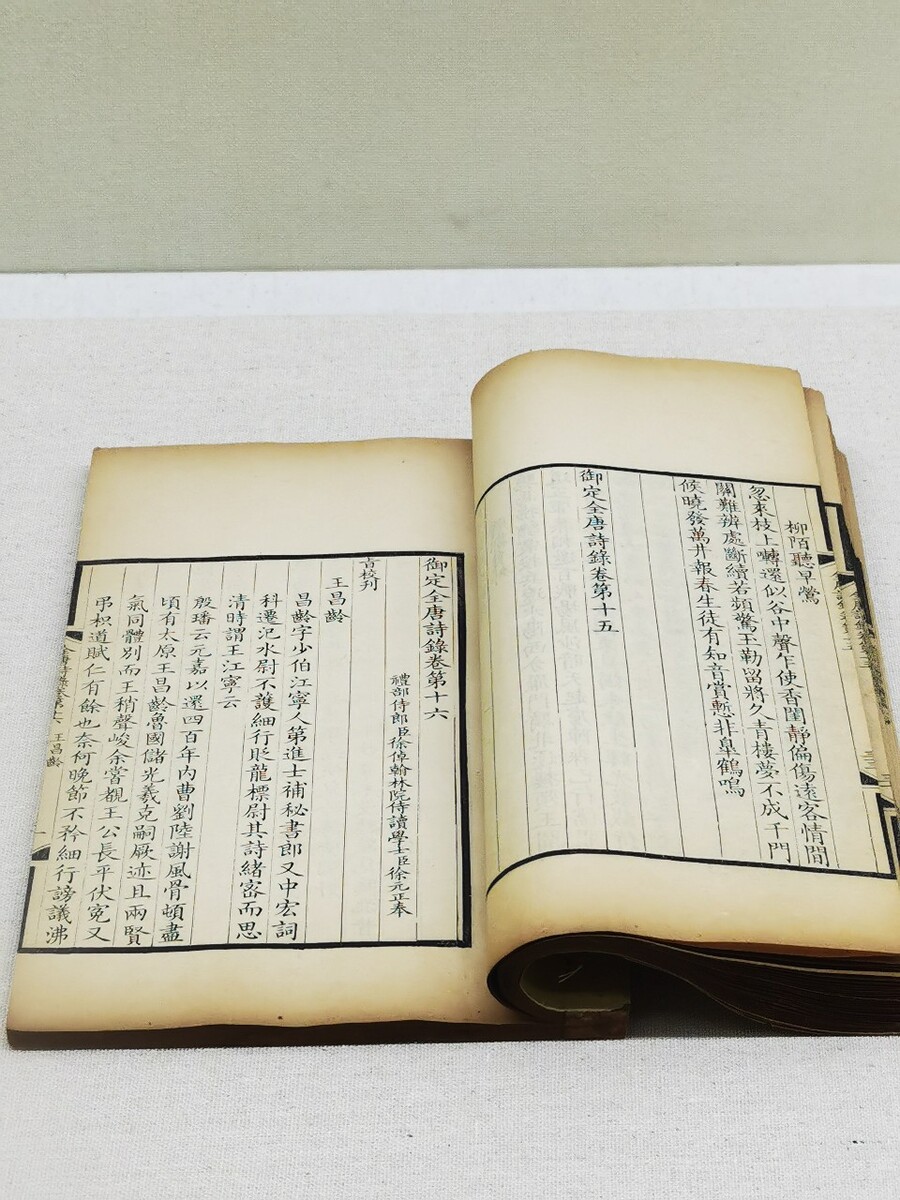 柳陌聽早鶯
忽來枝上囀還似谷中聲乍使香閨靜偏傷遠客情間
關難辨處斷續若頻驚玉勒留將久青樓夢不成千門
候曉發萬井報春生徒有知音賞慙非皐鶴鳴
御定全唐詩錄卷第十五
御定全唐詩錄卷第十六
禮部侍郎臣徐倬翰林院侍讀學士臣徐元正奉
旨校刊
王昌齡
昌齡字少伯江寧人第進士補秘書郎又中宏詞
科遷汜水尉不護細行貶龍標尉其詩緒密而思
清時謂王江寧云
殷璠云元嘉以還四百年內曹劉陸謝風骨頓盡
頃有太原王昌齡魯國儲光羲克嗣厥迹且兩賢
氣同體別而王稍聲峻余嘗覩王公長平伏冤又
弔枳道賦仁有餘也奈何晚節不矜細行謗議沸
全唐詩錄卷第十六 王昌齡 一